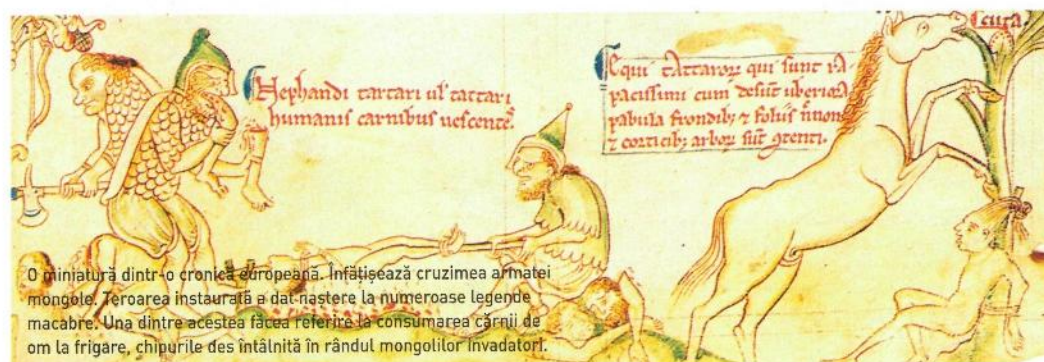 Nephandi tartari ul' tattari
humanis carnibus uescentes.
Equi tattaroꝝ qui sunt ra-
pacissimi cum desūt uberiora
pabula frondibꝫ ⁊ foliis nec non
⁊ corticibꝫ arboꝝ sūt ꝯtenti.
O miniatură dintr-o cronică europeană. Înfățișează cruzimea armatei
mongole. Teroarea instaurată a dat naștere la numeroase legende
macabre. Una dintre acestea făcea referire la consumarea cărnii de
om la frigare, chipurile des întâlnită în rândul mongolilor invadatori.